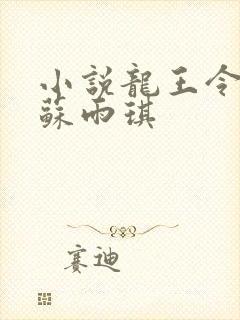 小說龍王令
蘇雨琪
賽迪